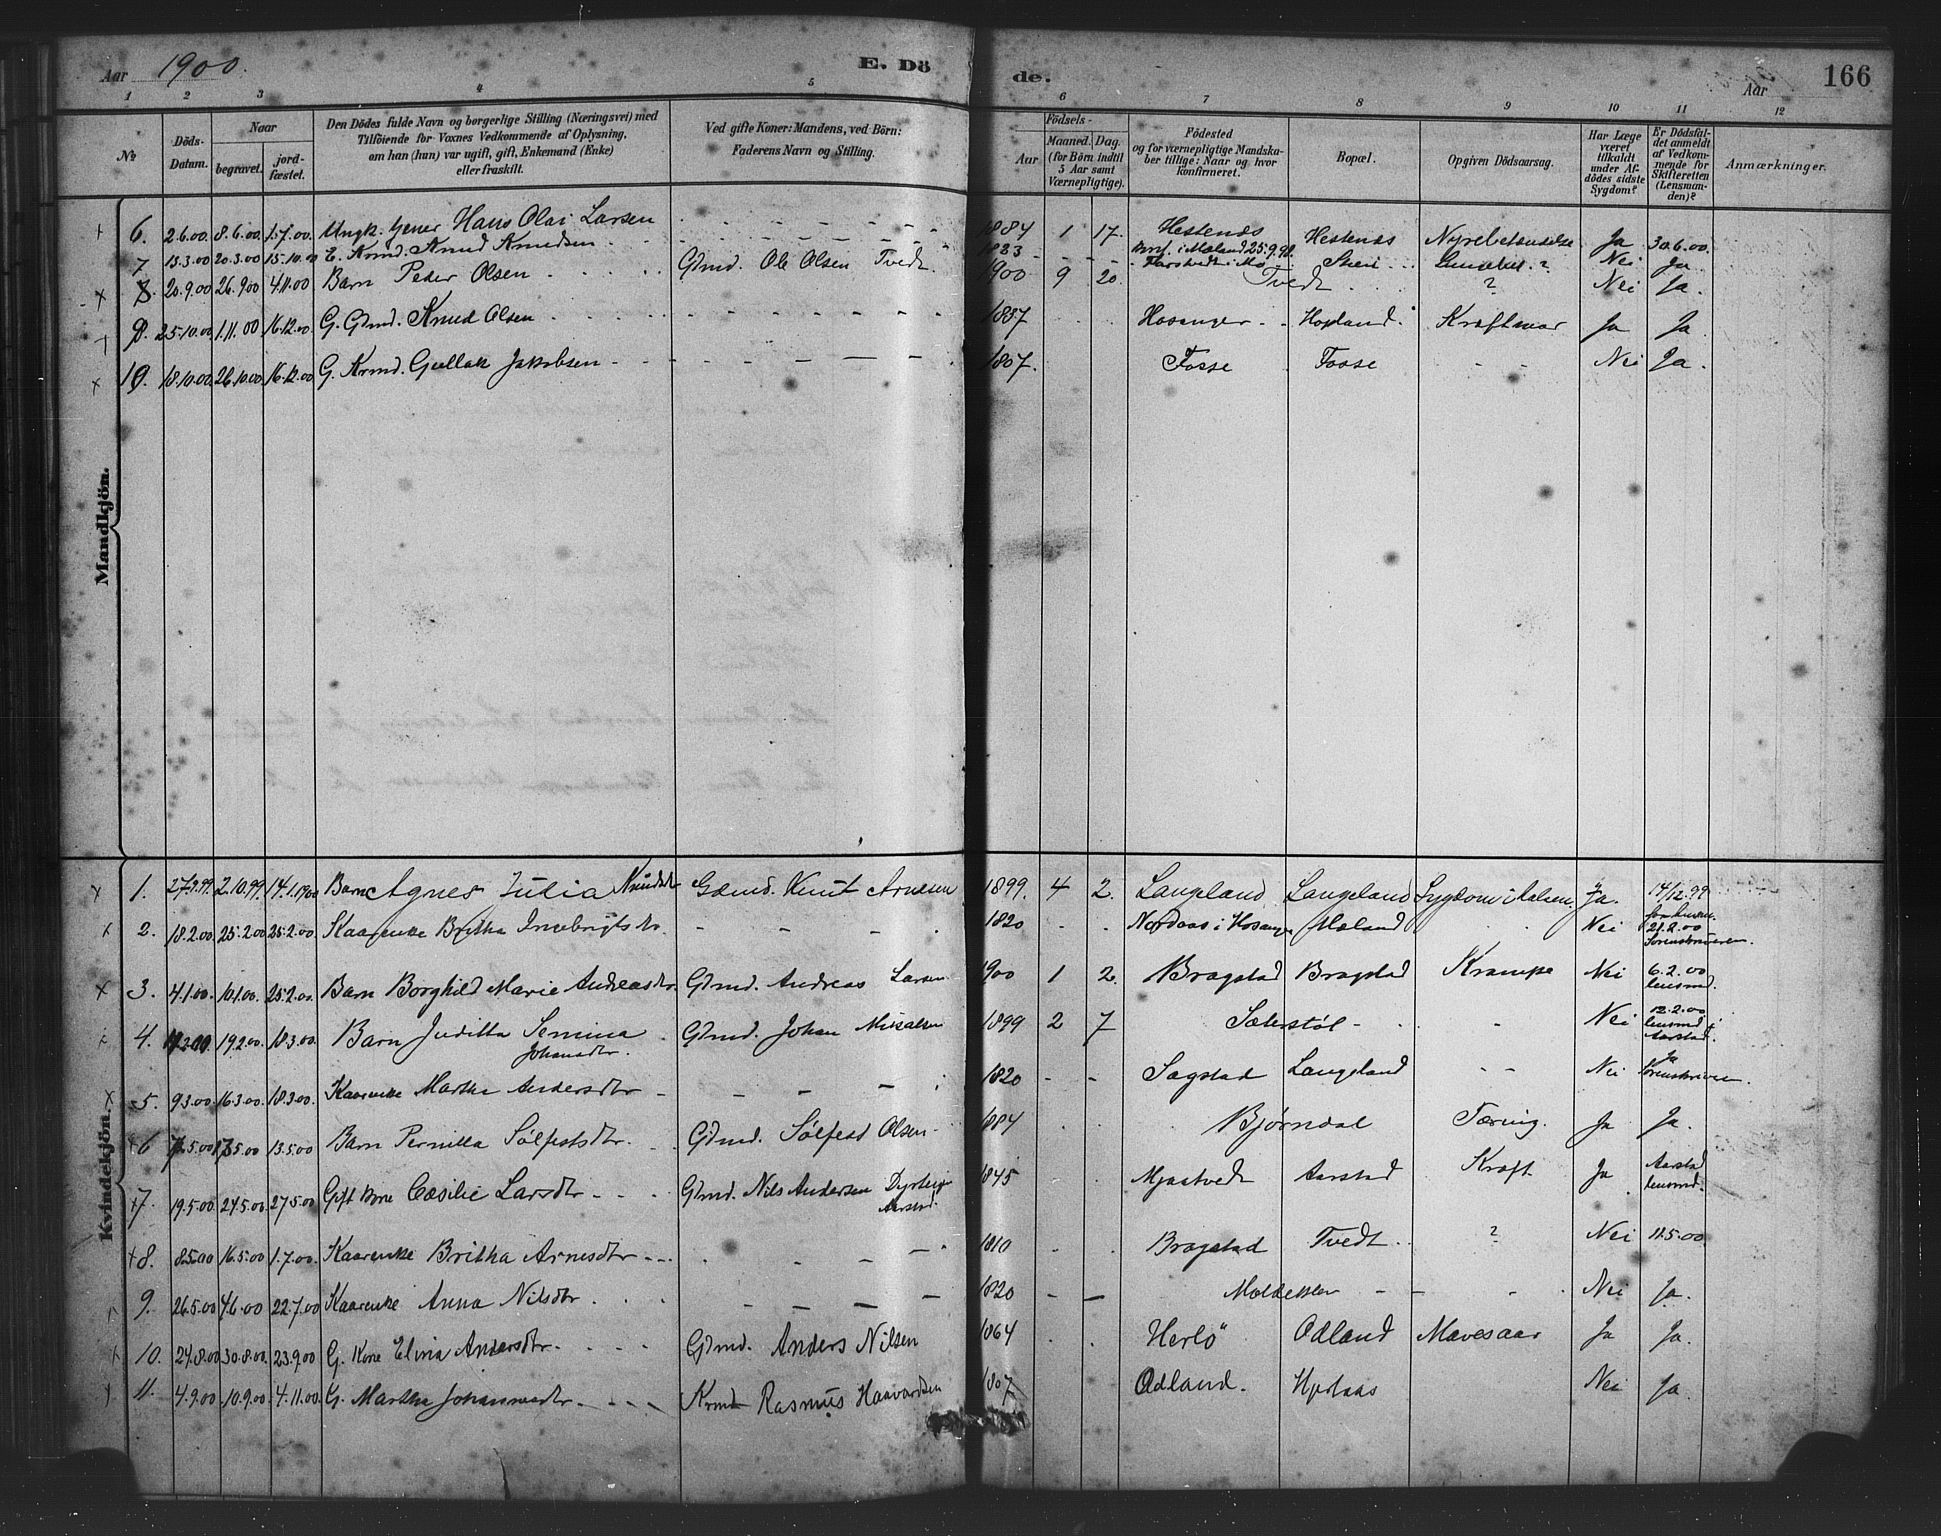 Aar 1900. E. Dö de. Aar 166
1 2 3 4 5 6 7 8 9 10 11 12
№ Döds-Datum. Naar begravet. jord-fæstet. Den Dödes fulde Navn og borgerlige Stilling (Næringsvei) med Tilföiende for Voxnes Vedkommende af Oplysning, om han (hun) var ugift, gift, Enkemand (Enke) eller fraskilt. Ved gifte Koner: Mandens, ved Börn: Faderens Navn og Stilling. Födsels- Aar Maaned. Dag. (for Börn indtil 5 Aar samt Værnepligtige). Födested og for værnepligtige Mandskaber tillige: Naar og hvor konfirmeret. Bopæl. Opgiven Dödsaarsag. Har Læge været tilkaldt under Afdödes sidste Sygdom? Er Dödsfaldet anmeldt af Vedkommende for Skifteretten (Lensmanden)? Anmærkninger.
Mandkjön.
6. 2.6.00. 8.6.00. 1.7.00. Ungk. Hans Olai Larsen 1884 1 17. Hestenæs Hestenæs Nyrebetændelse Ja 30.6.00.
7. 13.3.00 20.3.00 15.10.00 E. Krmd. Knud Knudsen 1823 Nei Ja
8. 20.9.00 26.9.00 4.11.00 Barn Peder Olsen Gdmd. Ole Olsen Tvedt 1900 9 20. Tvedt ? Nei Ja.
9. 25.10.00 1.11.00 16.12.00. G. Gdmd. Knud Olsen 1837 Hosanger Hopland Ja Ja
10. 18.10.00 26.10.00 16.12.00 G. Krmd. Gullak Jakobsen 1807. Fosse Fosse Nei Ja.
Kvindekjön.
1. 27.9.99. 2.10.99. 14.1.1900 Barn Agnes Julia Knudsdtr Gdmd. Knut Arnesen 1899. 4 2. Langeland Langeland Sygdom i Halsen. Ja. 14/12.99
2. 18.2.00. 25.2.00 25.2.00. Kaarenke Britha Ingebrigtsdtr. 1820 Nordaas i Hosanger Mæland Nei 21.2.00 Sorenskriveren.
3. 4.1.00. 10.1.00. 25.2.00. Barn Borghild Marie Andreasdtr. Gdmd. Andreas Larsen 1900 1 2. Bragstad Bragstad Krampe Nei 6.2.00 lensmd.
4. 19.2.00. 18.3.00. Barn Juditta Semina Johansdtr. Gdmd. Johan Mikalsen 1899 2 7 Sæterstøl Nei 12.2.00 lensmd i Aarstad.
5. 9.3.00. 16.3.00. 18.3.00. Kaarenke Martha Andersdtr 1820 Sagstad Langeland Nei Ja Sorenskriveren.
6 13.5.00 Barn Pernilla Sølfestsdtr. Gdmd. Sølfest Olsen 1884 Bjørndal Tæring. Ja Ja.
7. 19.5.00. 24.5.00. 27.5.00. Gift Kone Cæsilie Larsdtr Gdmd. Nils Andersen Aarstad. 1845 Mjaatvedt Aarstad Kræft Ja Aarstad lensmd.
8. 8.5.00 16.5.00 1.7.00. Kaarenke Britha Arnesdtr 1810 Bragstad Tvedt ? Nei 11.5.00.
9. 26.5.00 4.6.00 22.7.00 Kaarenke Anna Nilsdtr 1820 Nei Ja.
10. 24.8.00 30.8.00. 23.9.00 G. Kone Elina Andersdtr. Gdmd. Anders Nilsen 1864 Herlö Odland Mavesaar Ja Ja.
11. 4.9.00. 10.9.00 4.11.00 G. Martha Johannesdtr. Krmd Rasmus Haavardsen 1807 Odland. Hjertaas Nei Ja.